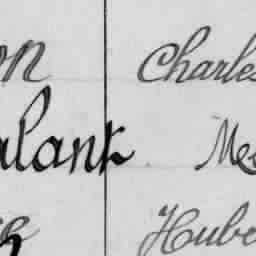 on Charles
alank Me
Hube